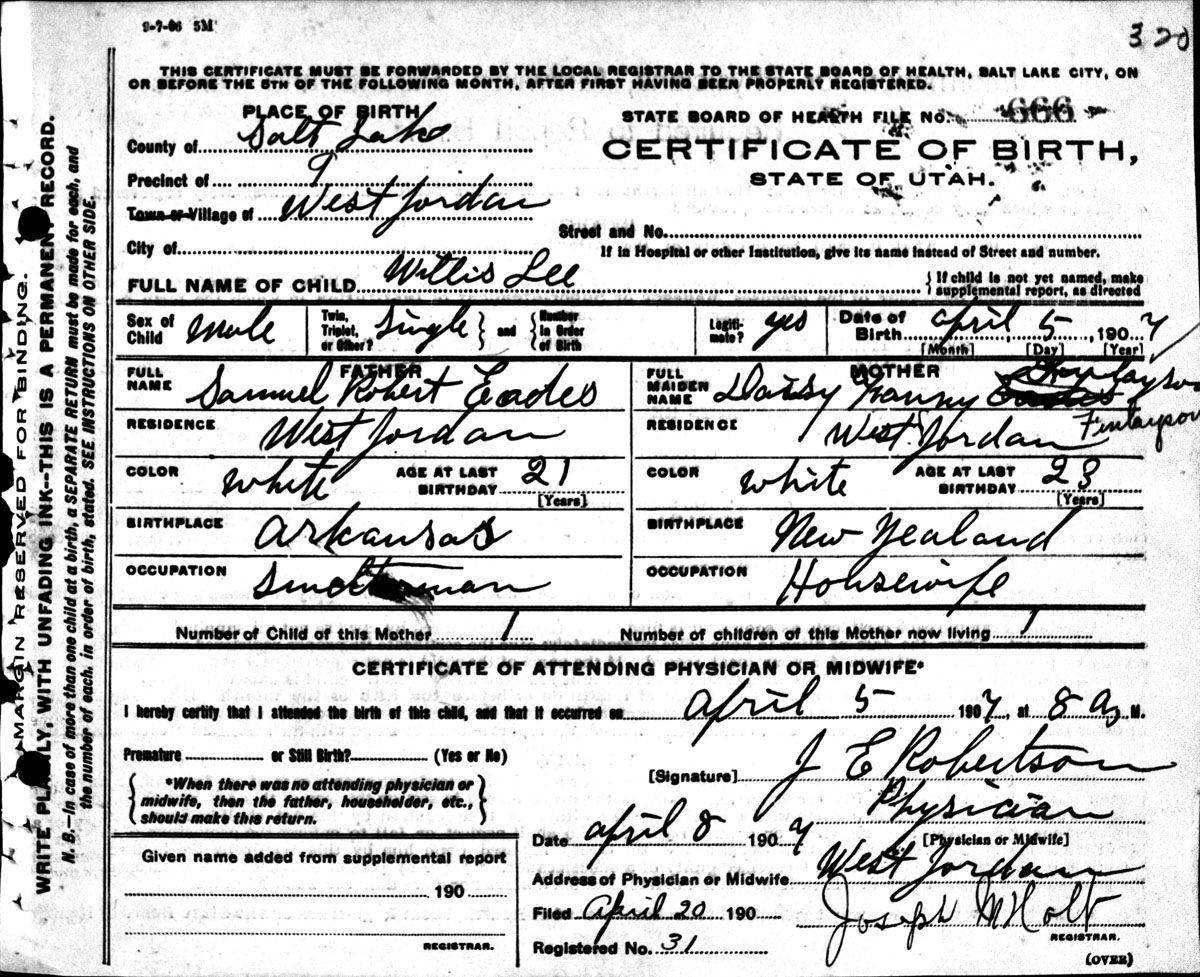 9-7-06 5M
320
THIS CERTIFICATE MUST BE FORWARDED BY THE LOCAL REGISTRAR TO THE STATE BOARD OF HEALTH, SALT LAKE CITY, ON
OR BEFORE THE 5TH OF THE FOLLOWING MONTH, AFTER FIRST HAVING BEEN PROPERLY REGISTERED.
PLACE OF BIRTH
County of Salt Lake
Precinct of 9
Town or Village of West Jordan
City of
STATE BOARD OF HEALTH FILE No. 666
CERTIFICATE OF BIRTH,
STATE OF UTAH.
Street and No.
If in Hospital or other Institution, give its name instead of Street and number.
FULL NAME OF CHILD Willis Lee
{ If child is not yet named, make
supplemental report, as directed
Sex of Child Male
Twin, Triplet, or Other? Single } and { Number in Order of Birth
Legiti-mate? yes
Date of Birth April 5, 1907
[Month] [Day] [Year]
FATHER
FULL NAME Samuel Robert Eades
RESIDENCE West Jordan
COLOR white AGE AT LAST BIRTHDAY 21
[Years]
BIRTHPLACE Arkansas
OCCUPATION Smelterman
MOTHER
FULL MAIDEN NAME Daisy Fanny Eades Finlayson
Finlayson
RESIDENCE West Jordan
COLOR white AGE AT LAST BIRTHDAY 23
[Years]
BIRTHPLACE New Zealand
OCCUPATION Housewife
Number of Child of this Mother 1 Number of children of this Mother now living 1
CERTIFICATE OF ATTENDING PHYSICIAN OR MIDWIFE*
I hereby certify that I attended the birth of this child, and that it occurred on April 5 1907, at 8 a M.
Premature or Still Birth? (Yes or No)
{ *When there was no attending physician or
midwife, then the father, householder, etc.,
should make this return. }
[Signature] J E Robertson
Physician
[Physician or Midwife]
Date April 8 1907
Address of Physician or Midwife West Jordan
Filed April 20 190
Registered No. 31
Joseph M Holt
REGISTRAR.
(OVER)
Given name added from supplemental report
190
REGISTRAR.
MARGIN RESERVED FOR BINDING.
WRITE PLAINLY, WITH UNFADING INK---THIS IS A PERMANENT RECORD.
N. B.—In case of more than one child at a birth, a SEPARATE RETURN must be made for each, and
the number of each, in order of birth, stated. SEE INSTRUCTIONS ON OTHER SIDE.